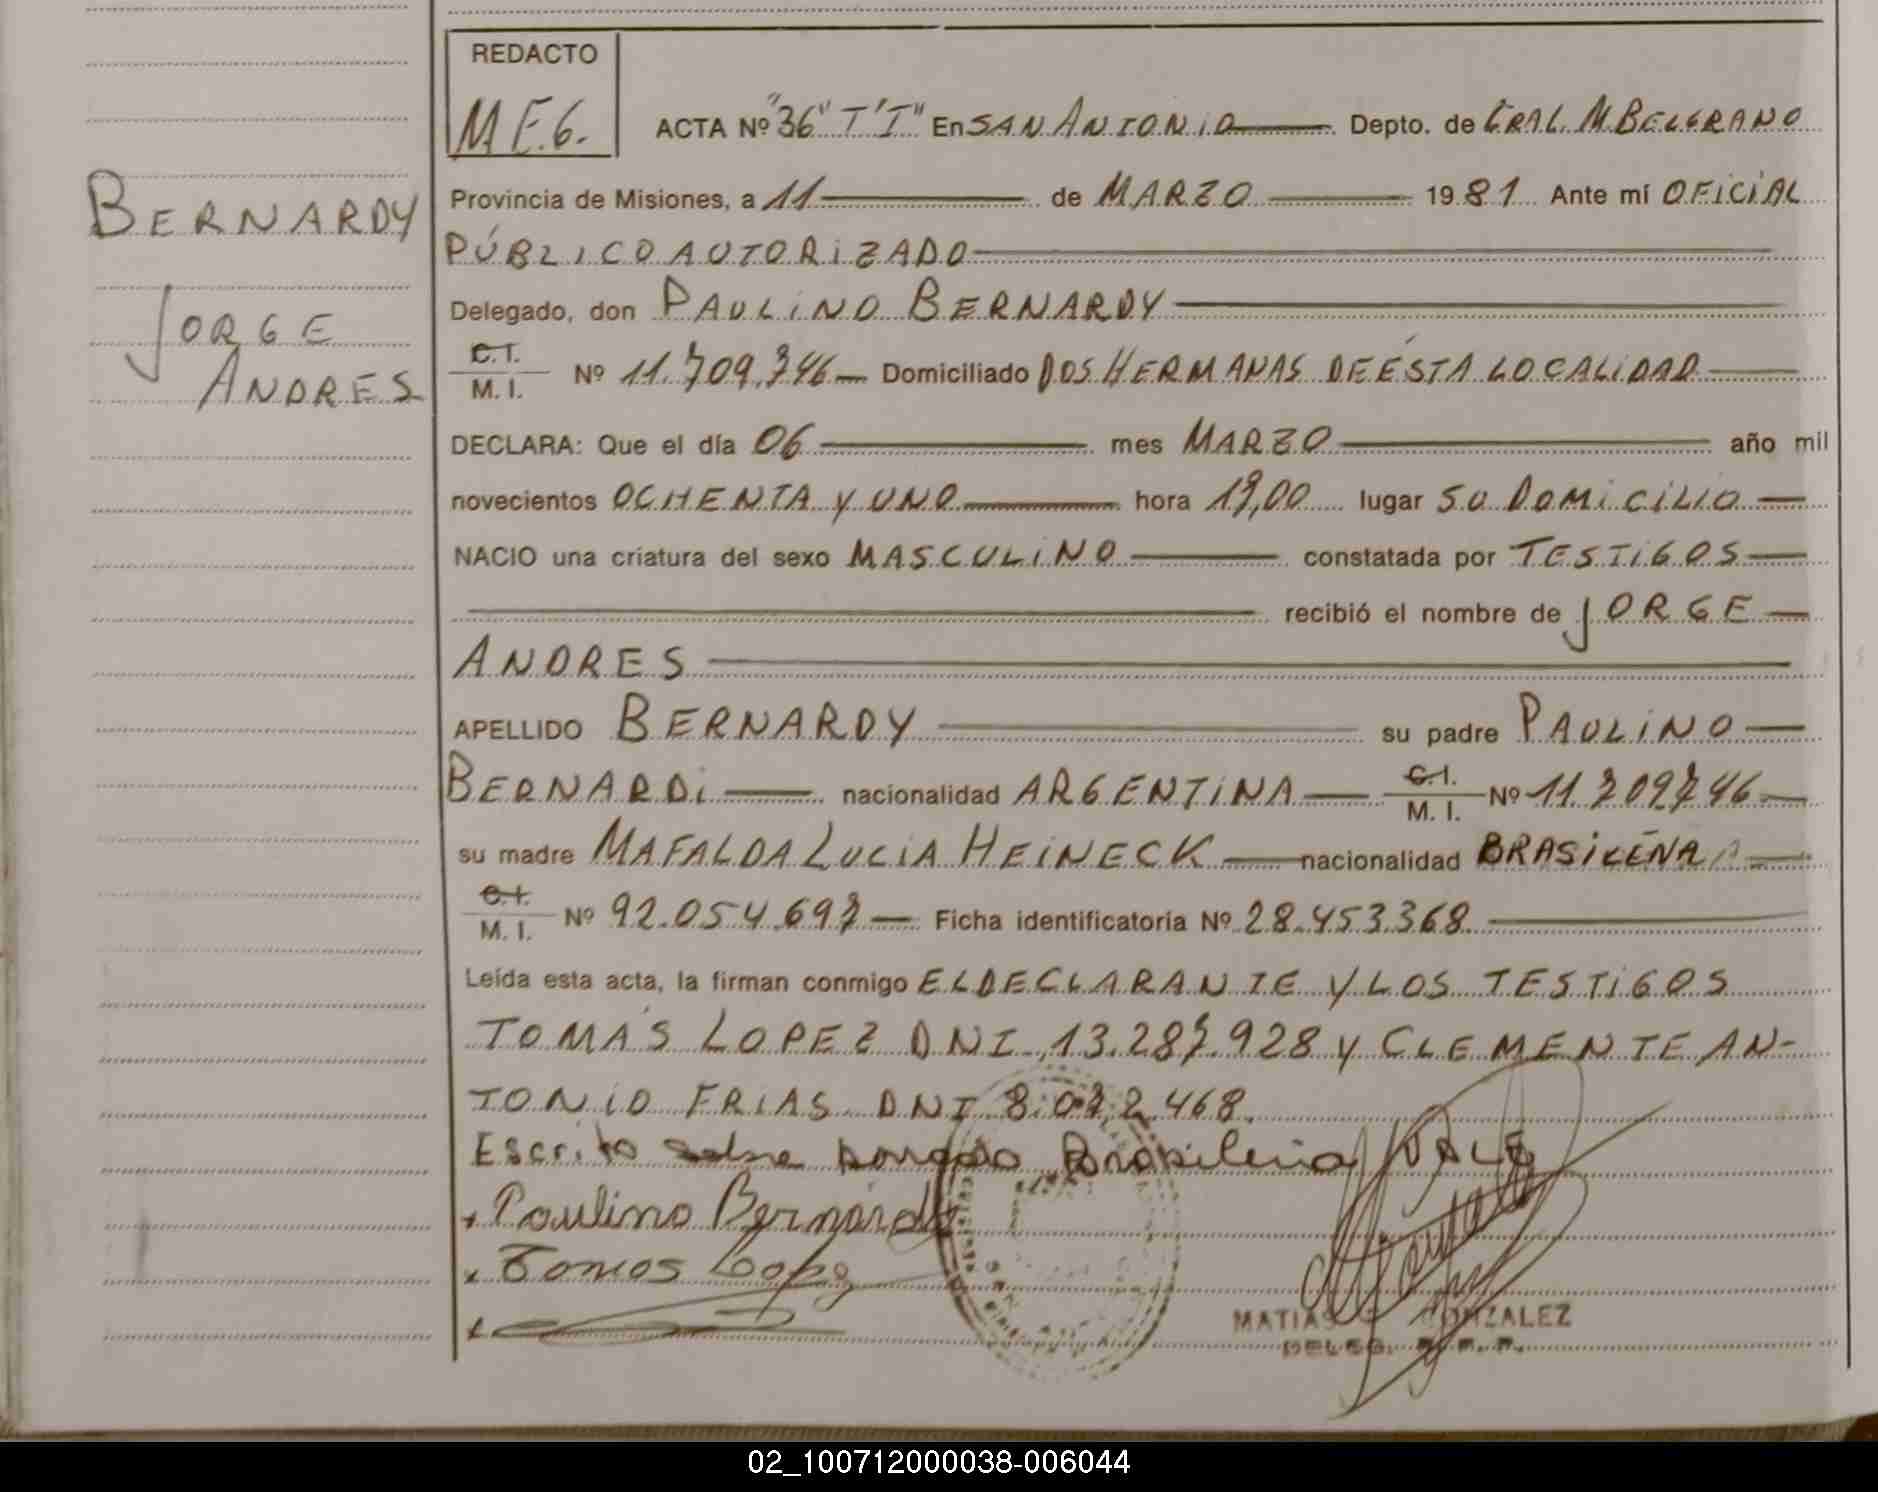 REDACTO
M.E.G.
ACTA Nº "36" T"I" En SAN ANTONIO Depto. de GRAL. M. BELGRANO
Provincia de Misiones, a 11 de MARZO 1981 Ante mí OFICIAL
PÚBLICO AUTORIZADO
BERNARDY
JORGE
ANDRES
Delegado, don PAULINO BERNARDY
C.I. M.I. Nº 11.709.746 Domiciliado DOS HERMANAS DE ÉSTA LOCALIDAD
DECLARA: Que el día 06 mes MARZO año mil
novecientos OCHENTA Y UNO hora 19,00 lugar SU DOMICILIO
NACIO una criatura del sexo MASCULINO constatada por TESTIGOS
recibió el nombre de JORGE
ANDRES
APELLIDO BERNARDY su padre PAULINO
BERNARDI nacionalidad ARGENTINA C.I. M.I. Nº 11.709746
su madre MAFALDA LUCIA HEINECK nacionalidad BRASILEÑA
C.I. M.I. Nº 92.054.697 Ficha identificatoria Nº 28.453.368
Leída esta acta, la firman conmigo EL DECLARANTE Y LOS TESTIGOS
TOMÁS LOPEZ DNI 13.287.928 Y CLEMENTE AN-
TONIO FRIAS DNI 8.072.468.
Escrito sobre borrado Brasileña VALE
Paulino Bernardy
Tomos Lopez
MATIAS GONZALEZ
02_100712000038-006044